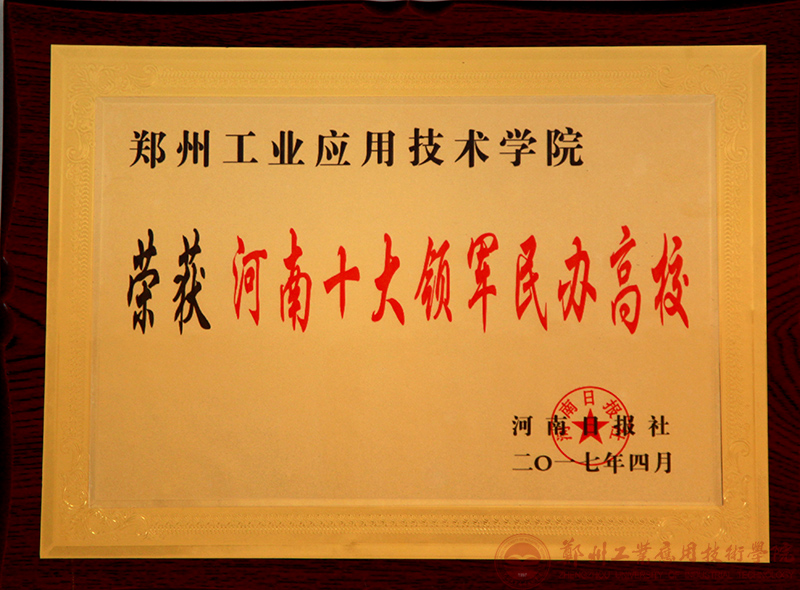 郑州工业应用技术学院
荣获 河南十大领军民办高校
河南日报社
河南日报社
二〇一七年四月
鄭州工業應用技術學